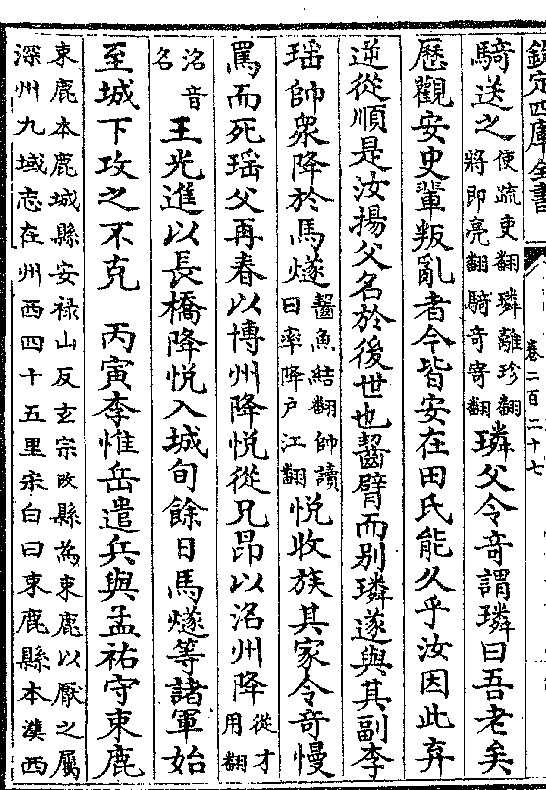 欽定四庫全書
卷二百二十七
騎送之使疏吏翻璘離珍翻將即亮翻騎奇寄翻璘父令奇謂璘曰吾老矣
歷觀安史輩叛亂者今皆安在田氏能久乎汝因此弃
逆從順是汝揚父名於後世也齧臂而别璘遂與其副李
瑶帥衆降於馬燧齧魚結翻帥讀曰率降户江翻悦收族其家令奇慢
罵而死瑶父再春以博州降悦從兄昂以洺州降從才用翻
洺音名王光進以長橋降悦入城旬餘日馬燧等諸軍始
至城下攻之不克 丙寅李惟岳遣兵與孟祐守束鹿
束鹿本鹿城縣安禄山反玄宗改縣為束鹿以厭之屬
深州九域志在州西四十五里宋白曰束鹿縣本漢西